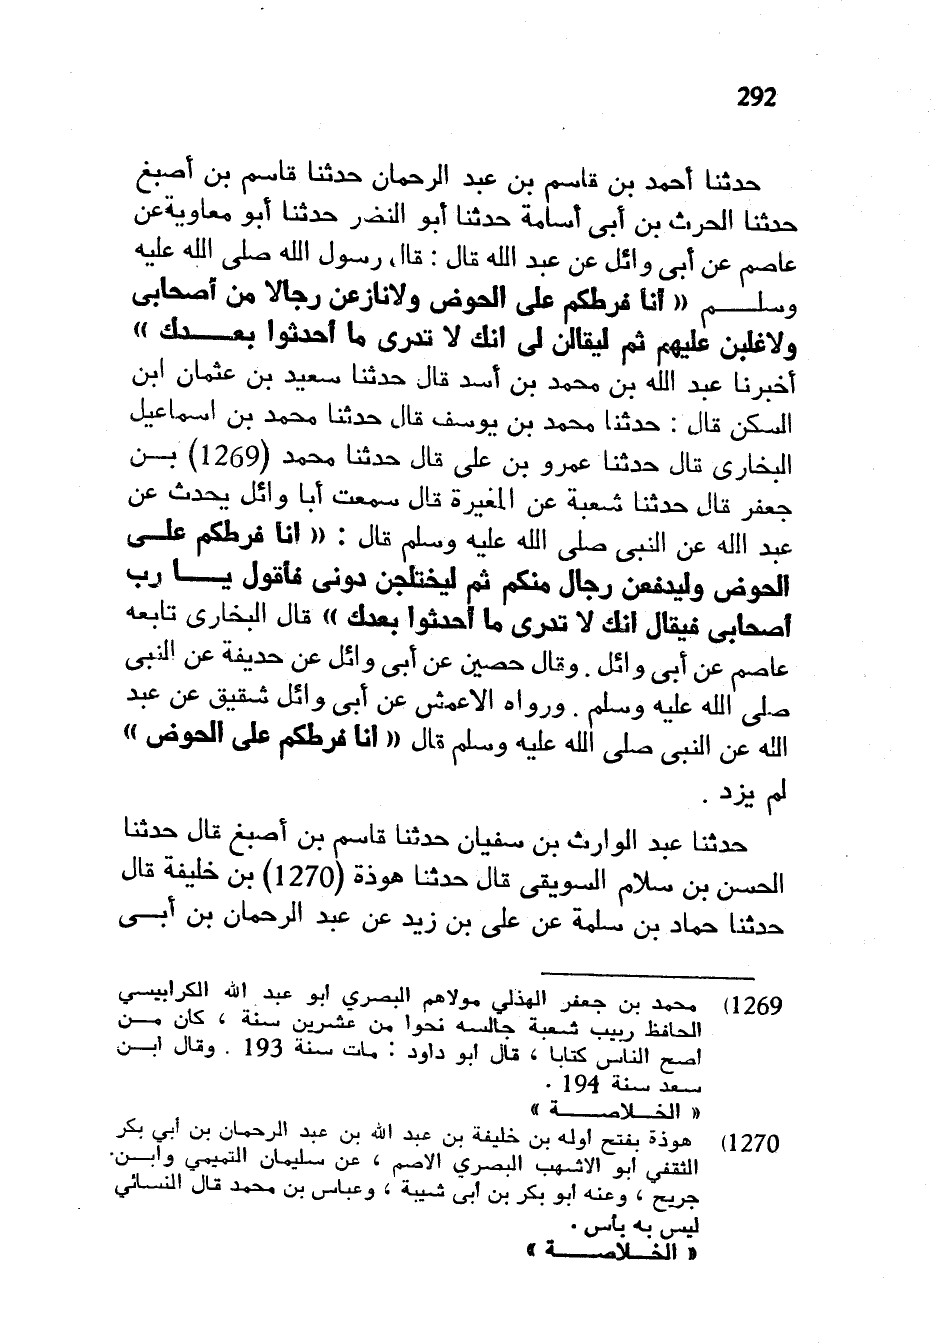 292
حدثنا أحمد بن قاسم بن عبد الرحمان حدثنا قاسم بن أصبغ
حدثنا الحرث بن أبى أسامة حدثنا أبو النضر حدثنا أبو معاوية عن
عاصم عن أبى وائل عن عبد الله قال : قال رسول الله صلى الله عليه
وسلـــــم « أنا فرطكم على الحوض ولانازعن رجالا من أصحابى
ولاغلبن عليهم ثم ليقالن لى انك لا تدرى ما أحدثوا بعـــــدك »
أخبرنا عبد الله بن محمد بن أسد قال حدثنا سعيد بن عثمان ابن
السكن قال : حدثنا محمد بن يوسف قال حدثنا محمد بن اسماعيل
البخارى قال حدثنا عمرو بن على قال حدثنا محمد (1269) بـــن
جعفر قال حدثنا شعبة عن المغيرة قال سمعت أبا وائل يحدث عن
عبد الله عن النبى صلى الله عليه وسلم قال : « انا فرطكم علـــى
الحوض وليدفعن رجال منكم ثم ليختلجن دونى فأقول يـــــا رب
أصحابى فيقال انك لا تدرى ما أحدثوا بعدك » قال البخارى تابعه
عاصم عن أبى وائل . وقال حصين عن أبى وائل عن حديفة عن النبى
صلى الله عليه وسلم . ورواه الاعمش عن أبى وائل شقيق عن عبد
الله عن النبى صلى الله عليه وسلم قال « انا فرطكم على الحوض »
لم يزد .
حدثنا عبد الوارث بن سفيان حدثنا قاسم بن أصبغ قال حدثنا
الحسن بن سلام السويقى قال حدثنا هوذة (1270) بن خليفة قال
حدثنا حماد بن سلمة عن على بن زيد عن عبد الرحمان بن أبـــى
1269) محمد بن جعفر الهذلي مولاهم البصري ابو عبد الله الكرابيسي
الحافظ ربيب شعبة جالسه نحوا من عشرين سنة ، كان مـــن
اصح الناس كتابا ، قال ابو داود : مات سنة 193 . وقال ابـــن
سعد سنة 194 .
« الخـــلاصـــــة »
1270) هوذة بفتح اوله بن خليفة بن عبد الله بن عبد الرحمان بن أبي بكر
الثقفي ابو الاشهب البصري الاصم ، عن سليمان التميمي وابـــن
جريح ، وعنه ابو بكر بن أبى شيبة ، وعباس بن محمد قال النسائي
ليس به بأس .
« الخـــلاصـــــة »